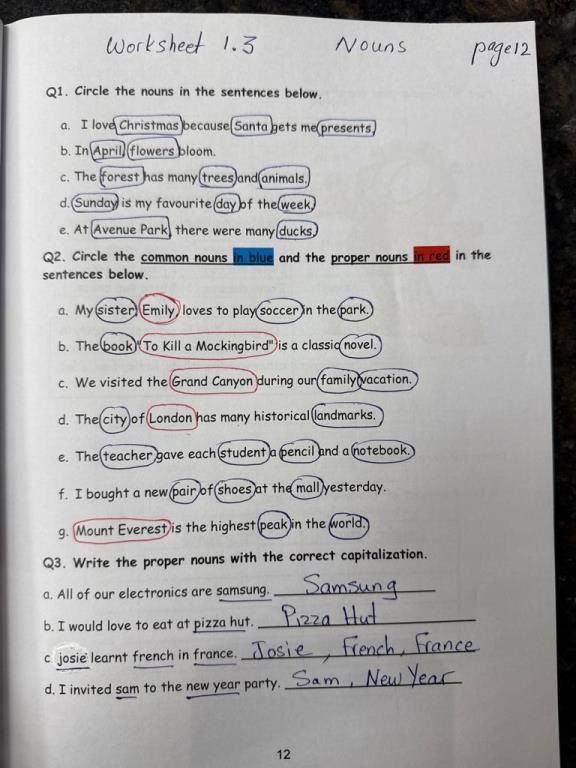 Worksheet 1.3 Nouns page12
Q1. Circle the nouns in the sentences below.
a. I love Christmas because Santa gets me presents.
b. In April, flowers bloom.
c. The forest has many trees and animals.
d. Sunday is my favourite day of the week.
e. At Avenue Park, there were many ducks.
Q2. Circle the common nouns in blue and the proper nouns in red in the
sentences below.
a. My sister Emily loves to play soccer in the park.
b. The book "To Kill a Mockingbird" is a classic novel.
c. We visited the Grand Canyon during our family vacation.
d. The city of London has many historical landmarks.
e. The teacher gave each student a pencil and a notebook.
f. I bought a new pair of shoes at the mall yesterday.
g. Mount Everest is the highest peak in the world.
Q3. Write the proper nouns with the correct capitalization.
a. All of our electronics are samsung. Samsung
b. I would love to eat at pizza hut. Pizza Hut
c. josie learnt french in france. Josie, French, France
d. I invited sam to the new year party. Sam, New Year
12